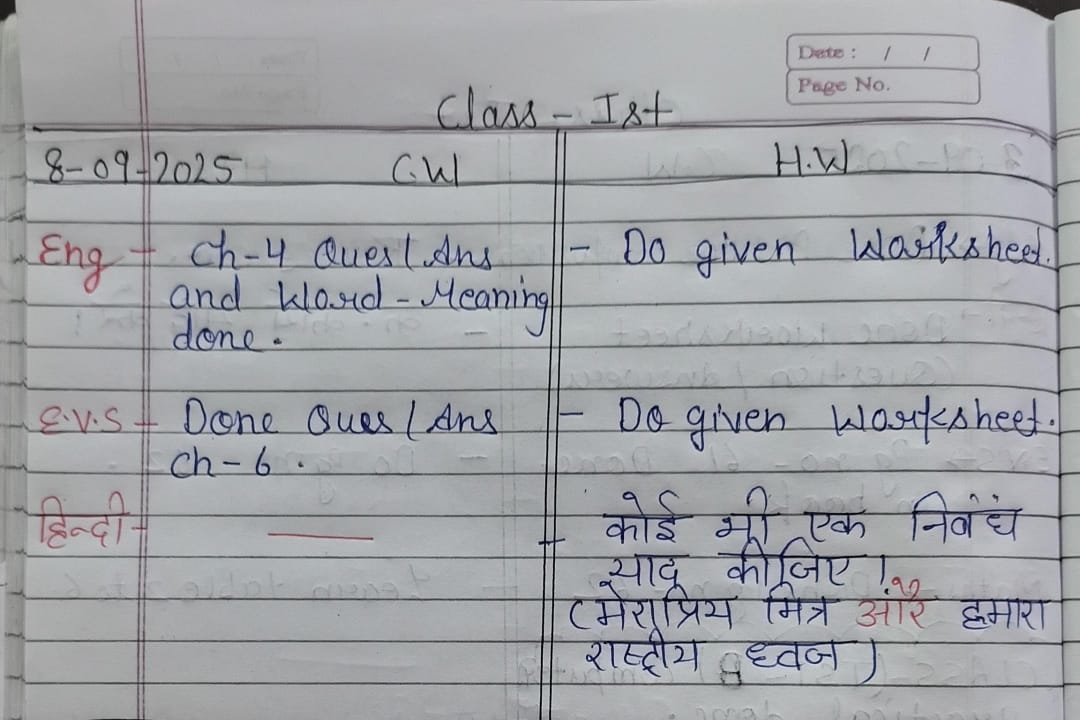 Date : / /
Page No.
Class - Ist
8-09-2025 C.W H.W
Eng - Ch-4 Ques/Ans - Do given Worksheet.
and Word-Meaning
done.
E.V.S - Done Ques/Ans - Do given Worksheet.
Ch-6.
हिन्दी - — - कोई भी एक निबंध
याद कीजिए।
(मेरा प्रिय मित्र और हमारा
राष्ट्रीय ध्वज)